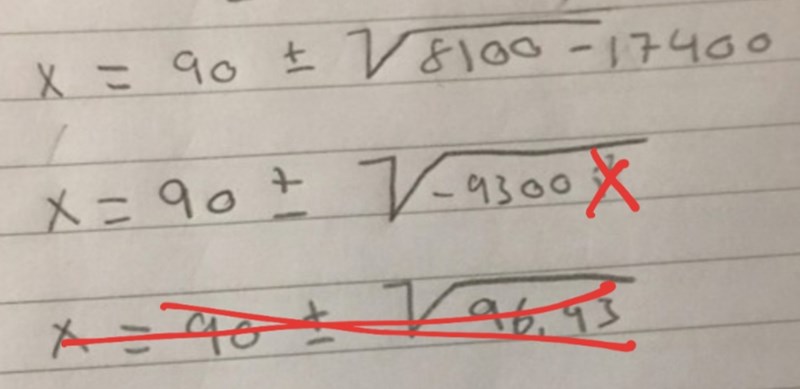 x = 90 ± √8100 - 17400
x = 90 ± √-9300
x = 90 ± √96.93